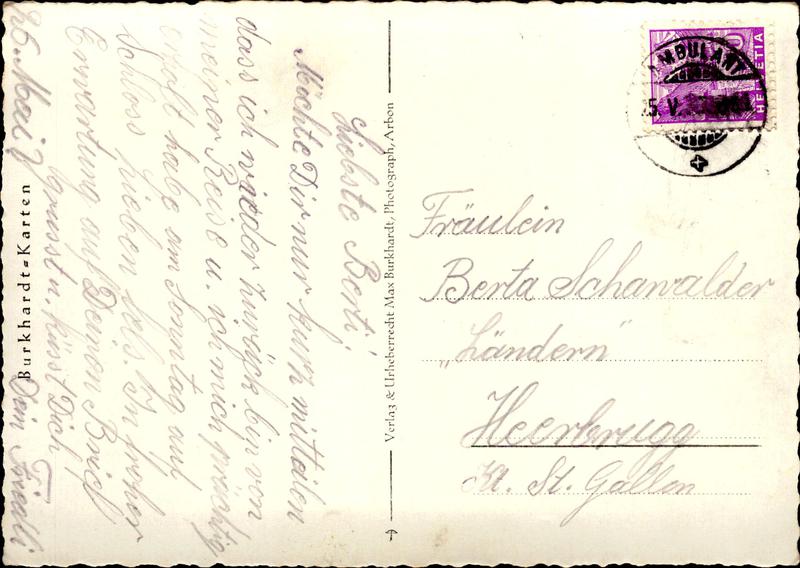 Liebste Berti!
Möchte Dir nur kurz mitteilen
dass ich wieder zurück bin von
meiner Reise u. ich mich prächtig
erholt habe am Sonntag auf
Schloss neben
In froher
Erwartung auf Deinen Brief
grüsst u. küsst Dich
Dein
26. Mai
Burkhardt-Karten
Verlag & Urheberrecht Max Burkhardt, Photograph, Arbon
AMBULANT
HELVETIA
Fräulein
Berta Schawalder
„Ländern"
Heerbrugg
Kt. St. Gallen